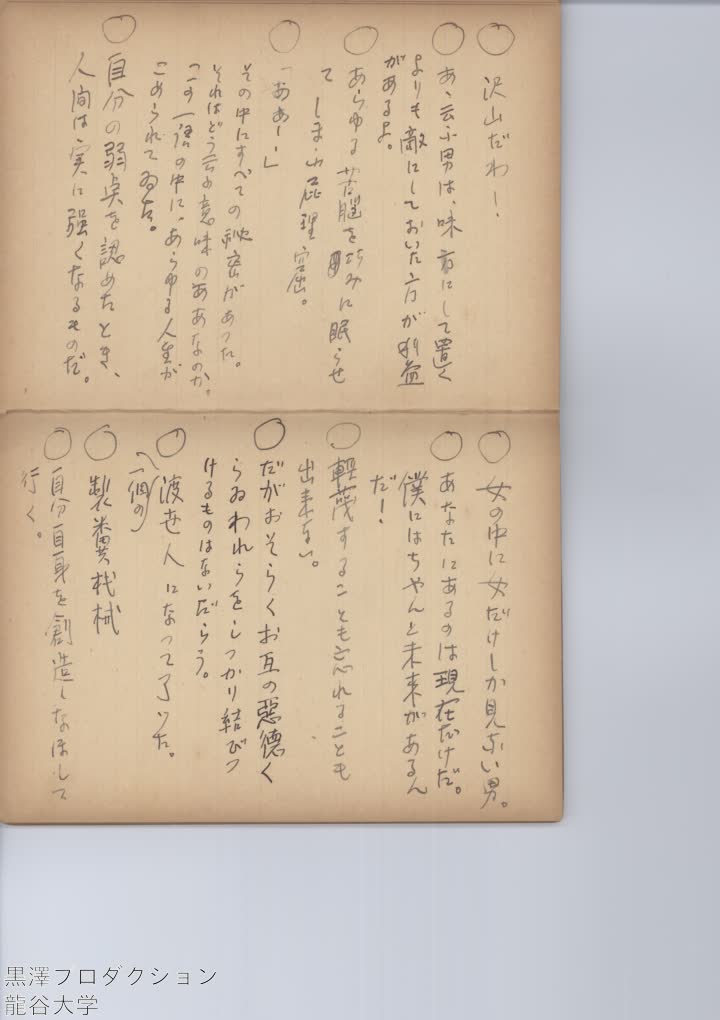 ○ 沢山だわー.
○ あゝ云ふ男は、味方にして置く
よりも敵にしておいた方が利益
があるよ。
○ あらゆる苦脳を巧みに眠らせ
て しまふ屁理窟。
○ 「ああー、」
その中にすべての秘密があつた。
それはどう云ふ意味のああなのか。
この一語の中に、あらゆる人生が
こめられてゐた。
○ 自分の弱点を認めたとき、
人間は実に強くなるものだ。
○ 女の中に女だけしか見ない男。
○ あなたにあるのは現在だけだ。
僕にはちやんと未来があるん
だ!
○ 軽蔑することも忘れることも
出来ない。
○ だがおそらくお互の悪徳く
らゐわれらをしつかり結びつ
けるものはないだらう。
○ 渡世人になって了つた。
(一個の)
○ 製糞機械
○ 自分自身を創造しなほして
行く。
黒澤プロダクション
龍谷大学